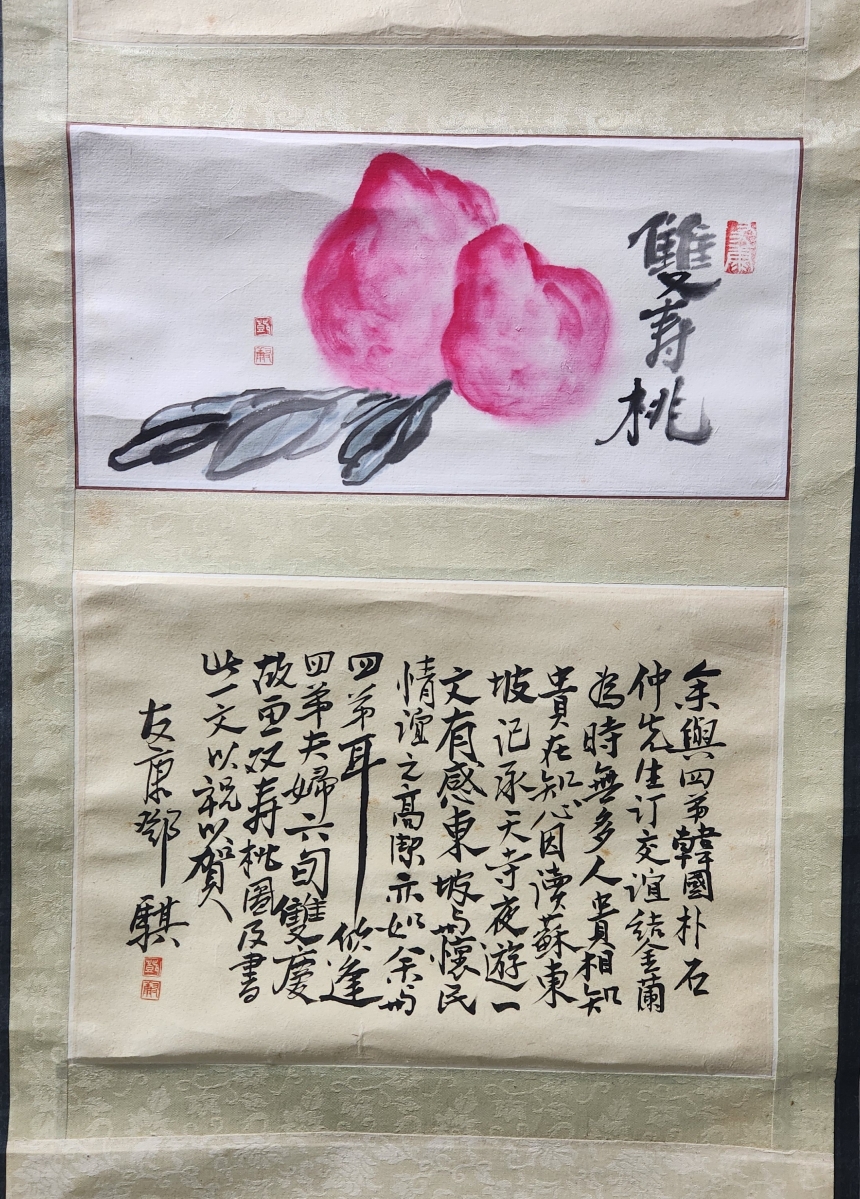 雙寿桃
余與四弟韓國朴石
仲先生订交谊結金蘭
為時無多人貴相知
貴在知心因读蘇東
坡记承天寺夜遊一
文有感東坡与懷民
情谊之高潔亦如余与
四弟耳欣逢
四弟夫婦六旬雙慶
故画双寿桃圖及書
此一文以祝以賀
友康鄧騏